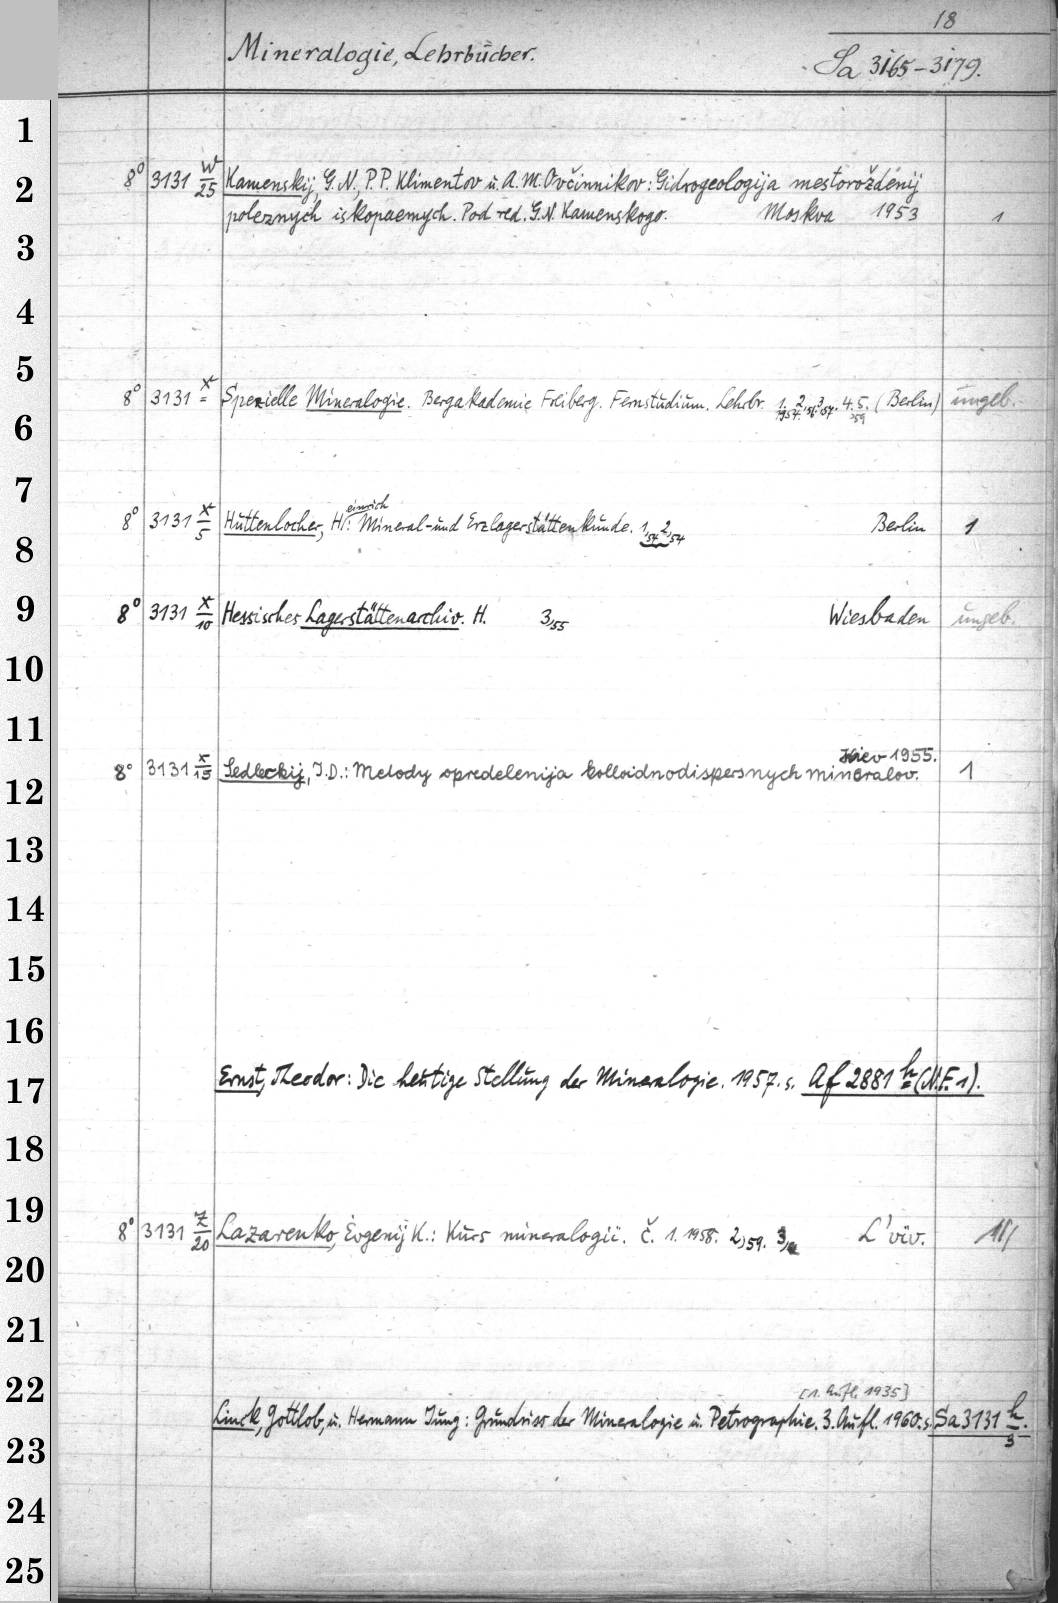 18
Mineralogie, Lehrbücher. Sa 3165-3179.
1
8° 3131 W/25 Kamenskij, G. N., P. P. Klimentov u. A. M. Ovčinnikov: Gidrogeologija mestoroždenij
2
poleznych iskopaemych. Pod red. G. N. Kamenskogo. Moskva 1953 1
3
4
5
8° 3131 x Spezielle Mineralogie. Bergakademie Freiberg. Fernstudium. Lehrbr. 1. 2. 3. 4. 5. (Berlin) ungeb.
6
7
einrich
8° 3131 x/5 Huttenlocher, H.: Mineral- und Erzlagerstättenkunde. 1,54 2,54 Berlin 1
8
9
8° 3131 x/10 Hessisches Lagerstättenarchiv. H. 3,55 Wiesbaden ungeb.
10
11
Kiev 1955.
8° 3131 x/15 Sedleckij, I.D.: Metody opredelenija kolloidnodispersnych mineralov. 1
12
13
14
15
16
Ernst, Theodor: Die heutige Stellung der Mineralogie. 1957. s. Af 2881 h (N.F. 1).
17
18
19
8° 3131 z/20 Lazarenko, Evgenij K.: Kurs mineralogii. č. 1. 1958. 2,59. 3, L'viv.
20
21
22
[1. Aufl. 1935]
Linck, Gottlob, u. Hermann Jung: Grundriss der Mineralogie u. Petrographie. 3. Aufl. 1960. s. Sa 3131 h/3.
23
24
25